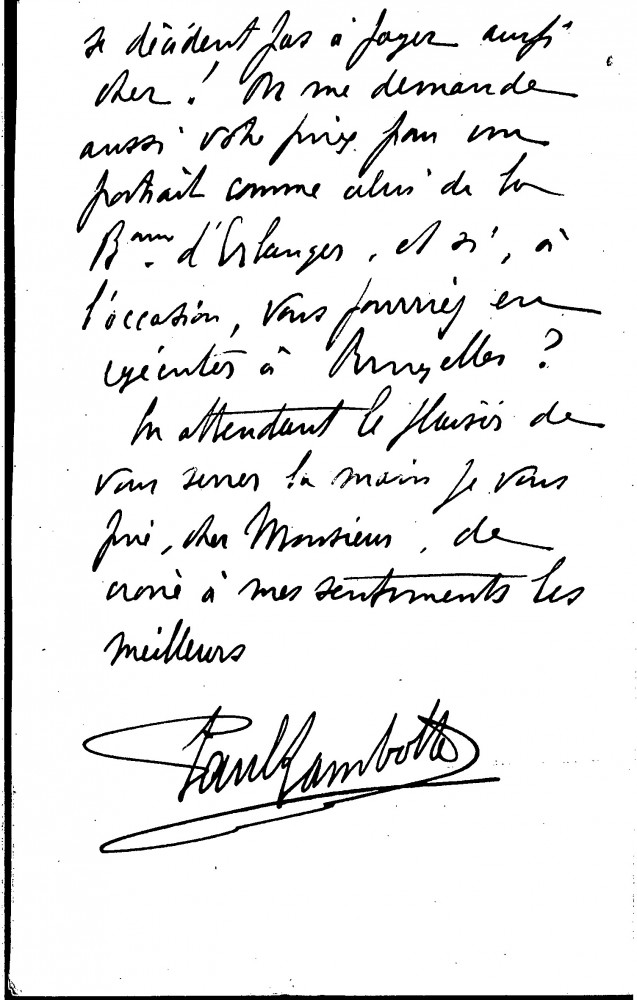 se décident pas à payer aussi
cher! On me demande
aussi votre prix pour un
portrait comme celui de la
Bnne d'Erlanger, et si, à
l'occasion, vous pourriez en
exécuter à Bruxelles?
En attendant le plaisir de
vous serrer la main je vous
prie, cher Monsieur, de
croire à mes sentiments les
meilleurs
Paul Lambotte